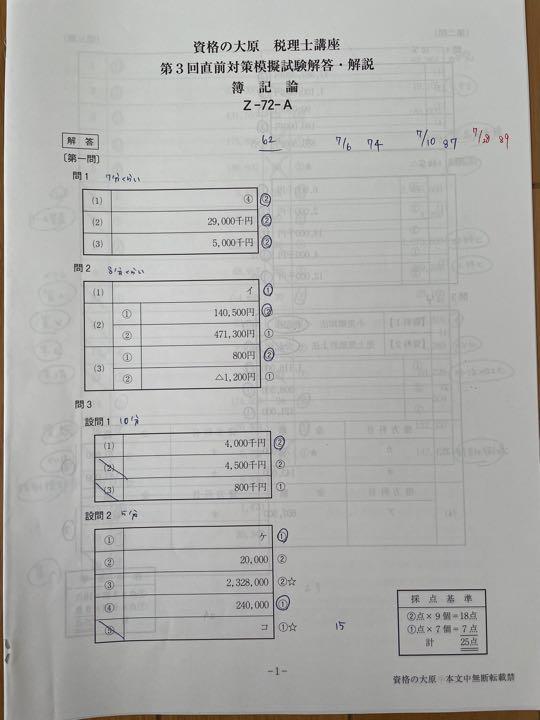 資格の大原 税理士講座
第3回直前対策模擬試験解答・解説
簿記論
Z-72-A
解答 62 7/6 74 7/10 87 7/28 89
〔第一問〕
問1 7分くらい
(1) ④ ②
(2) 29,000千円 ②
(3) 5,000千円 ②
問2 8分くらい
(1) イ ①
(2) ① 140,500円 ②
② 471,300円 ①
(3) ① 800円 ②
② △1,200円 ①
問3
設問1 10分
(1) 4,000千円 ②
(2) 4,500千円 ②
(3) 800千円 ①
設問2 5分
① ケ ①
② 20,000 ②
③ 2,328,000 ②☆
④ 240,000 ①
⑤ コ ①☆ 15
採点基準
②点×9個=18点
①点×7個=7点
計 25点
-1-
資格の大原 本文中無断転載禁